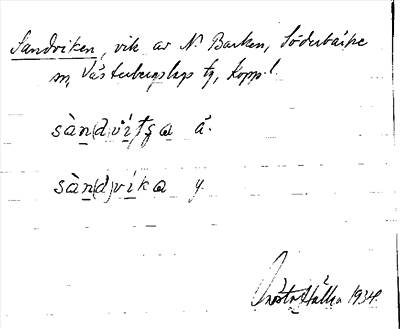 Sandviken, vik av N. Barken, Söderbärke
sn, Västerbergslags tg, Kopp. l.
sàn(d)vitȿa ä.
sàn(d)vika y.
1934.